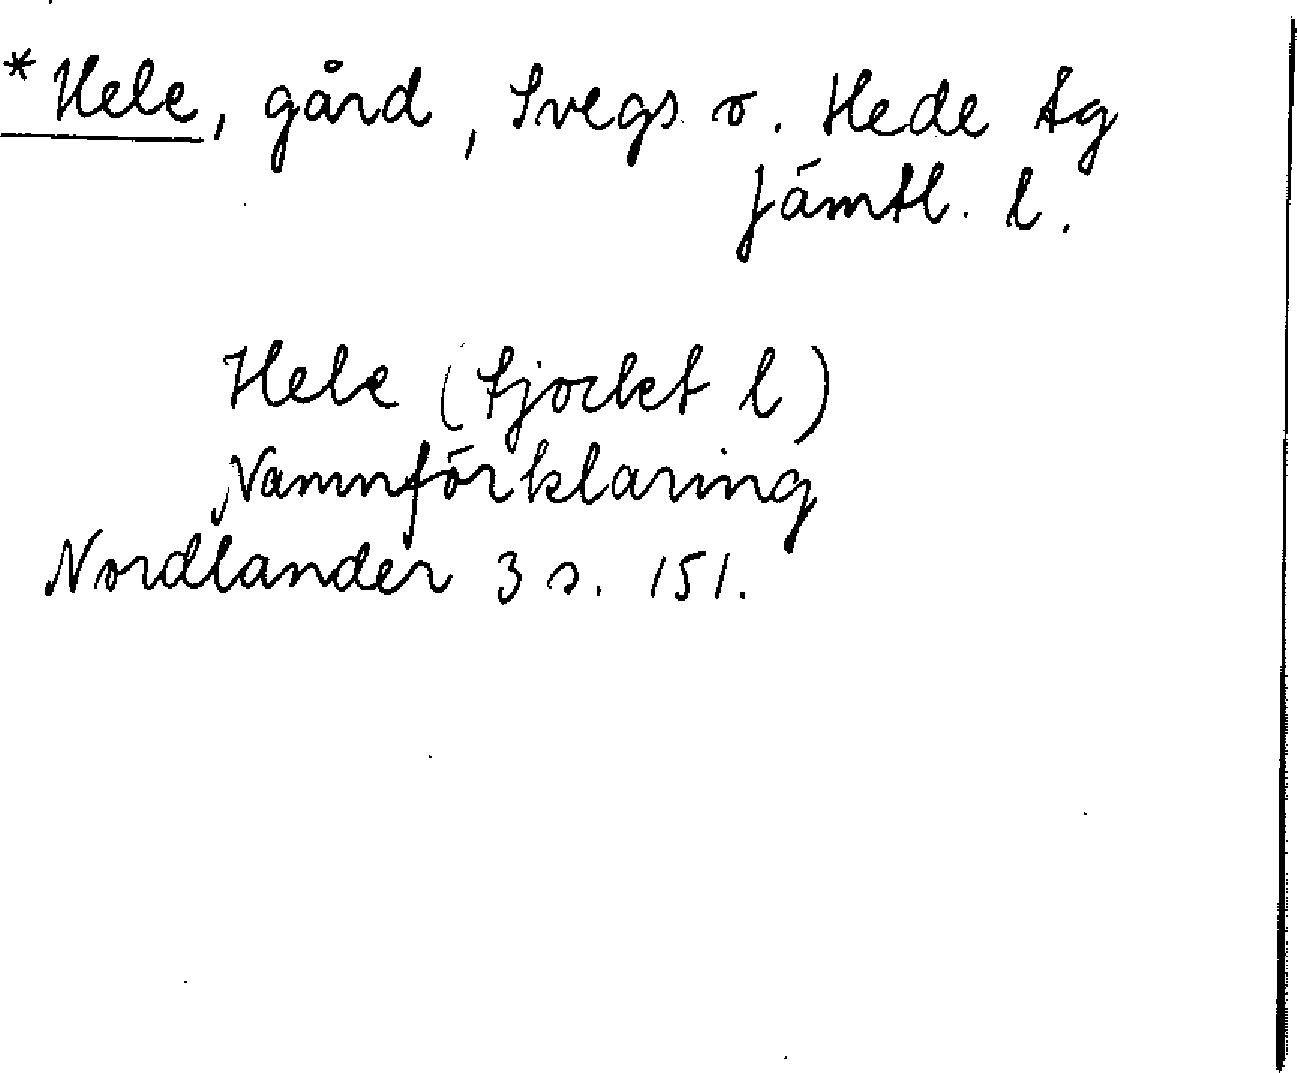 *Hele, gård, Svegs o. Hede tg
Jämtl. l.
Hele (tjocket l)
Namnförklaring
Nordlander 3 s. 151.